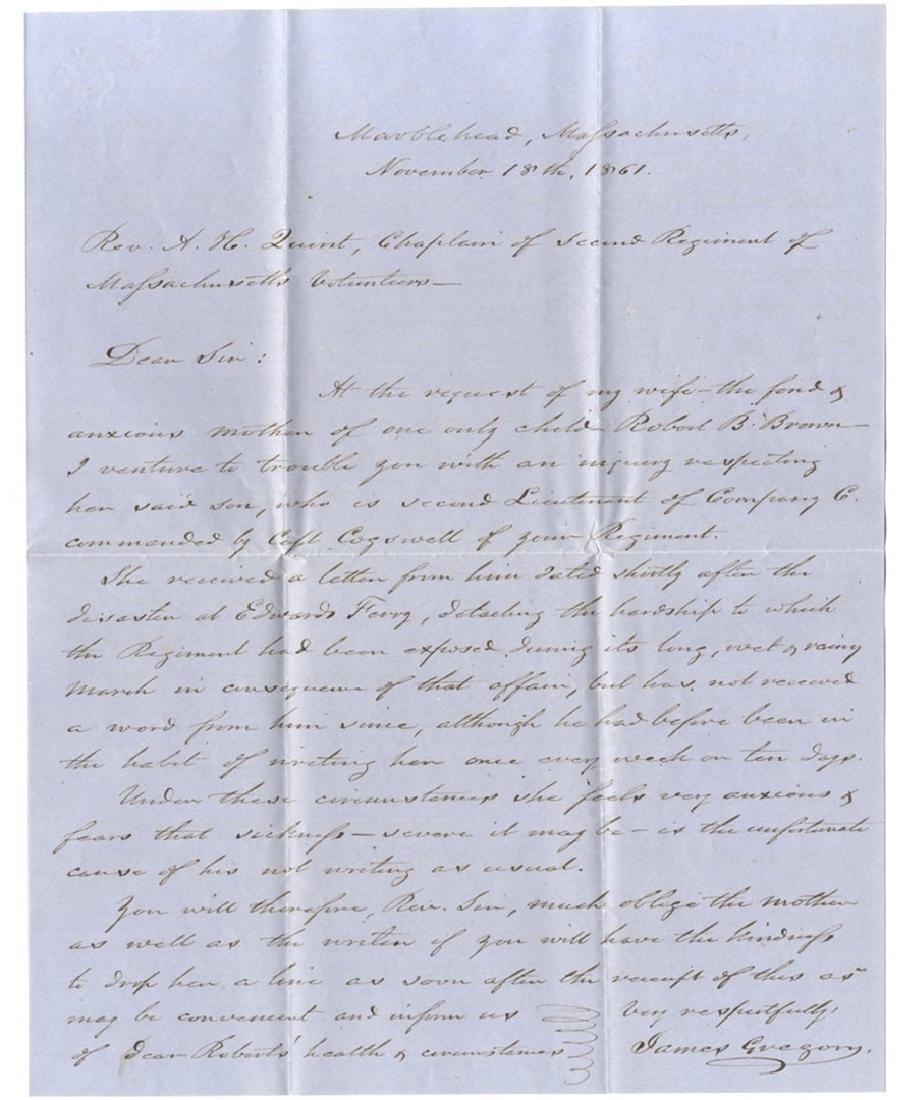 Marblehead, Massachusetts,
November 18th, 1861.
Rev. A. H. Quint, Chaplain of Second Regiment of
Massachusetts Volunteers—
Dear Sir:
At the request of my wife—the fond &
anxious mother of one only child Robert B. Brown—
I venture to trouble you with an inquiry respecting
her said son, who is second Lieutenant of Company C.
commanded by Capt Cogswell of your Regiment.
She received a letter from him dated shortly after the
disaster at Edwards Ferry, detailing the hardship to which
the Regiment had been exposed during its long, wet & rainy
march in consequence of that affair, but has not received
a word from him since, although he had before been in
the habit of writing her once every week or ten days.
Under these circumstances she feels very anxious &
fears that sickness—severe it may be—is the unfortunate
cause of his not writing as usual.
You will therefore, Rev. Sir, much oblige the mother
as well as the writer if you will have the kindness
to drop her a line as soon after the receipt of this as
may be convenient and inform us
of Dear Roberts' health & circumstances
Very respectfully,
James Gregory.